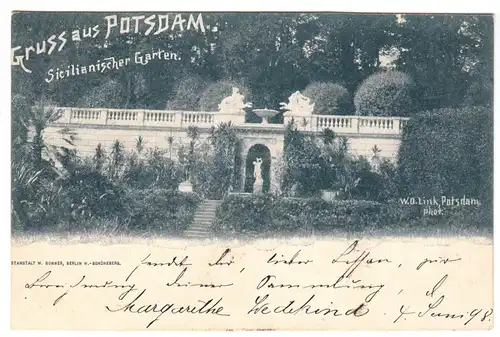 Gruss aus POTSDAM.
Sicilianischer Garten.
W.O. Link, Potsdam
phot.
STANSTALT W. SOMMER, BERLIN W.-SCHÖNEBERG.
sendet Dir, lieber, zur
Bereicherung deiner Sammlung,
Margarethe Wedekind 4 Juni 98.